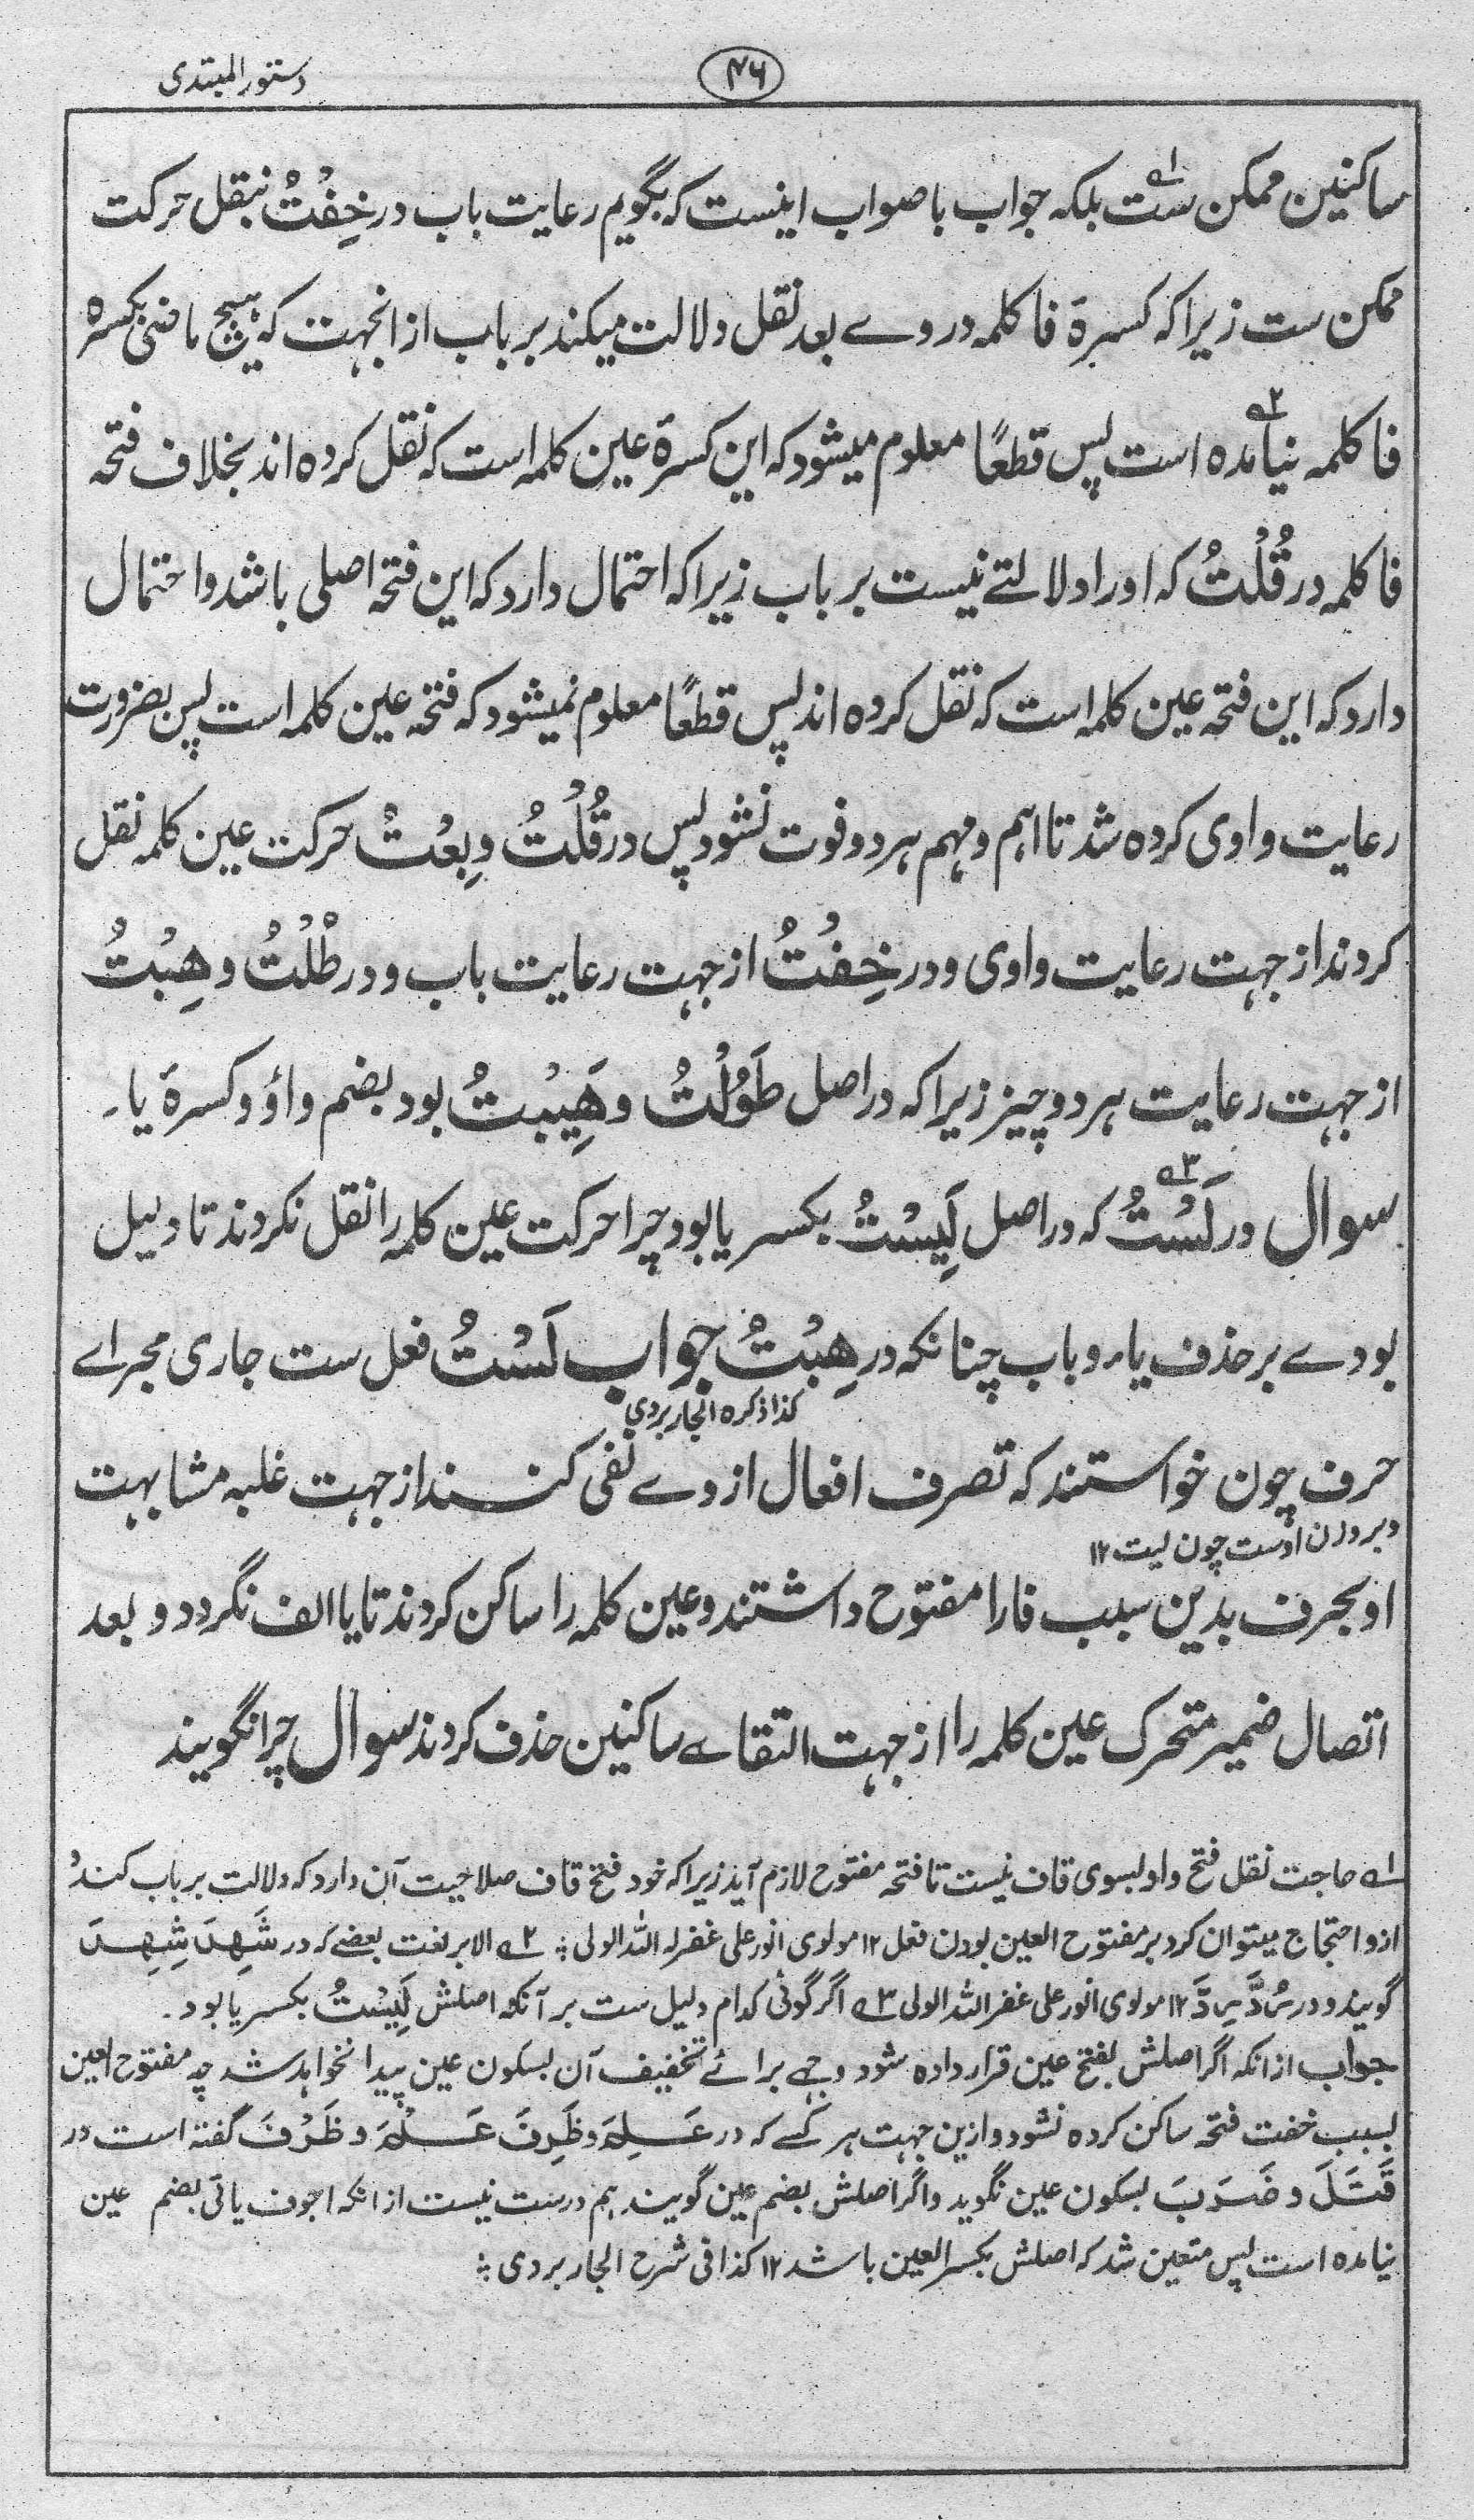 دستور المبتدی
۴۶
ساکنین ممکن ست بلکہ جواب با صواب اینست کہ بگویم رعایت باب در خِفْتُ بنقل حرکت
ممکن ست زیرا کہ کسرۂ فا کلمہ در وے بعد نقل دلالت میکند بر باب از انجہت کہ ہیچ ماضی بکسرہ
فا کلمہ نیامدہ است پس قطعًا معلوم میشود کہ این کسرۂ عین کلمہ است کہ نقل کردہ اند بخلاف فتحہ
فا کلمہ در قُلْتُ کہ اورا دلالتے نیست بر باب زیرا کہ احتمال دارد کہ این فتحہ اصلی باشد و احتمال
دارد کہ این فتحہ عین کلمہ است کہ نقل کردہ اند پس قطعًا معلوم نمیشود کہ فتحہ عین کلمہ است پس بضرورت
رعایت واوی کردہ شد تا اہم و مہم ہر دو فوت نشود پس در قُلْتُ وبِعْتُ حرکت عین کلمہ نقل
کردند از جہت رعایت واوی و در خِفْتُ از جہت رعایت باب و در طُلْتُ و هِبْتُ
از جہت رعایت ہر دو چیز زیرا کہ در اصل طَوُلْتُ و هَيِبْتُ بود بضم واؤ و کسرۂ یا۔
سوال در لَسْتُ کہ در اصل لَيِسْتُ بکسر یا بود چرا حرکت عین کلمہ را نقل نکردند تا دلیل
بودے بر حذف یاء و باب چنانکہ در هِبْتُ جواب لَسْتُ فعل ست جاری مجراے
کذا ذکرہ الجاربردی
حرف چون خواستند کہ تصرف افعال از وے نفی کنند از جہت غلبہ مشابہت
و بر وزن اوست چون لیت ۱۲
او بحرف بدین سبب فا را مفتوح داشتند و عین کلمہ را ساکن کردند تا یا الف نگردد و بعد
اتصال ضمیر متحرک عین کلمہ را از جہت التقاے ساکنین حذف کردند سوال چرا نگویند
۱؎ حاجت نقل فتح واو بسوی قاف نیست تا فتحہ مفتوح لازم آید زیرا کہ خود فتح قاف صلاحیت آن دارد کہ دلالت بر باب کند و
ازو احتجاج میتوان کرد بر مفتوح العین بودن فعل ۱۲ مولوی انور علی غفر لہ اللہ الولی ؛ ۲؎ الا بر لغت بعضے کہ در شَهِدَ شِهِدَ
گویند و در رُدَّ رِدَّ ۱۲ مولوی انور علی غفر اللہ الولی ۳؎ اگر گوئی کدام دلیل ست بر آنکہ اصلش لَيِسْتُ بکسر یا بود۔
جواب ازانکہ اگر اصلش بفتح عین قرار دادہ شود وجہے برائے تخفیف آن بسکون عین پیدا نخواہد شد چہ مفتوح العین
بسبب خفت فتحہ ساکن کردہ نشود و ازین جہت ہر کسے کہ در عَلِمَ و ظَرِفَ عَلْمَ و ظَرْفَ گفتہ است در
قَتَلَ و ضَرَبَ بسکون عین نگوید و اگر اصلش بضم عین گویند ہم درست نیست ازانکہ اجوف یائی بضم عین
نیامدہ است پس متعین شد کہ اصلش بکسر العین باشد ۱۲ کذا فی شرح الجاربردی ؛